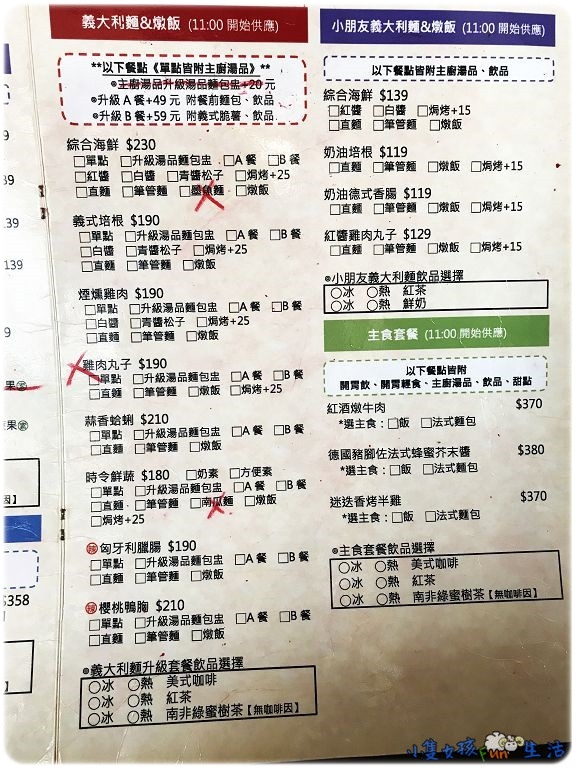 義大利麵&燉飯 (11:00 開始供應)
**以下餐點《單點皆附主廚湯品》**
⊙主廚湯品升級湯品麵包盅+20 元
⊙升級 A 餐+49 元 附餐前麵包、飲品
⊙升級 B 餐+59 元 附義式脆薯、飲品
綜合海鮮 $230
□單點 □升級湯品麵包盅 □A 餐 □B 餐
□紅醬 □白醬 □青醬松子 □焗烤+25
□直麵 □筆管麵 □墨魚麵 □燉飯
義式培根 $190
□單點 □升級湯品麵包盅 □A 餐 □B 餐
□白醬 □青醬松子 □焗烤+25
□直麵 □筆管麵 □燉飯
煙燻雞肉 $190
□單點 □升級湯品麵包盅 □A 餐 □B 餐
□白醬 □青醬松子 □焗烤+25
□直麵 □筆管麵 □燉飯
雞肉丸子 $190
□單點 □升級湯品麵包盅 □A 餐 □B 餐
□直麵 □筆管麵 □燉飯 □焗烤+25
蒜香蛤蜊 $210
□單點 □升級湯品麵包盅 □A 餐 □B 餐
□直麵 □筆管麵 □燉飯
時令鮮蔬 $180 □奶素 □方便素
□單點 □升級湯品麵包盅 □A 餐 □B 餐
□直麵 □筆管麵 □南瓜麵 □燉飯
□焗烤+25
辣 匈牙利臘腸 $190
□單點 □升級湯品麵包盅 □A 餐 □B 餐
□直麵 □筆管麵 □燉飯
辣 櫻桃鴨胸 $210
□單點 □升級湯品麵包盅 □A 餐 □B 餐
□直麵 □筆管麵 □燉飯
⊙義大利麵升級套餐飲品選擇
○冰 ○熱 美式咖啡
○冰 ○熱 紅茶
○冰 ○熱 南非綠蜜樹茶【無咖啡因】
小朋友義大利麵&燉飯 (11:00 開始供應)
以下餐點皆附主廚湯品、飲品
綜合海鮮 $139
□紅醬 □白醬 □焗烤+15
□直麵 □筆管麵 □燉飯
奶油培根 $119
□直麵 □筆管麵 □燉飯 □焗烤+15
奶油德式香腸 $119
□直麵 □筆管麵 □燉飯 □焗烤+15
紅醬雞肉丸子 $129
□直麵 □筆管麵 □燉飯 □焗烤+15
⊙小朋友義大利麵飲品選擇
○冰 ○熱 紅茶
○冰 ○熱 鮮奶
主食套餐 (11:00 開始供應)
以下餐點皆附
開胃飲、開胃輕食、主廚湯品、飲品、甜點
紅酒燉牛肉 $370
*選主食：□飯 □法式麵包
德國豬腳佐法式蜂蜜芥末醬 $380
*選主食：□飯 □法式麵包
迷迭香烤半雞 $370
*選主食：□飯 □法式麵包
⊙主食套餐飲品選擇
○冰 ○熱 美式咖啡
○冰 ○熱 紅茶
○冰 ○熱 南非綠蜜樹茶【無咖啡因】
139
果
果
$358
因】
小隻女孩 fun 生活